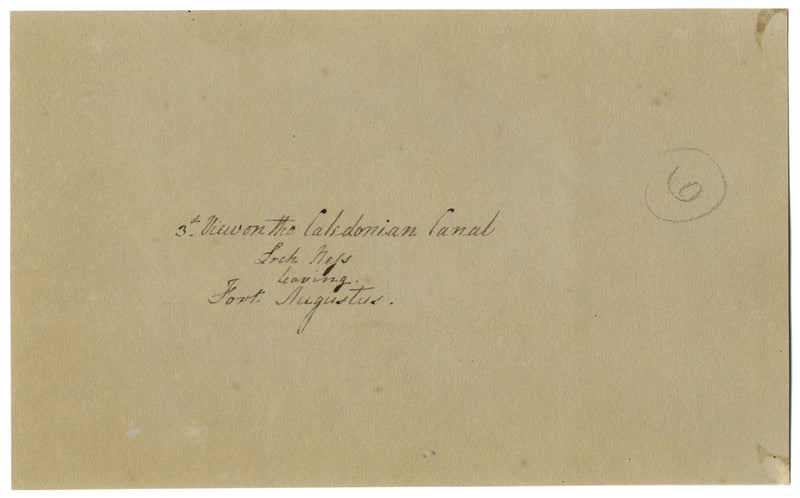 3d. View on the Caledonian Canal
Loch Ness
leaving.
Fort Augustus.
6